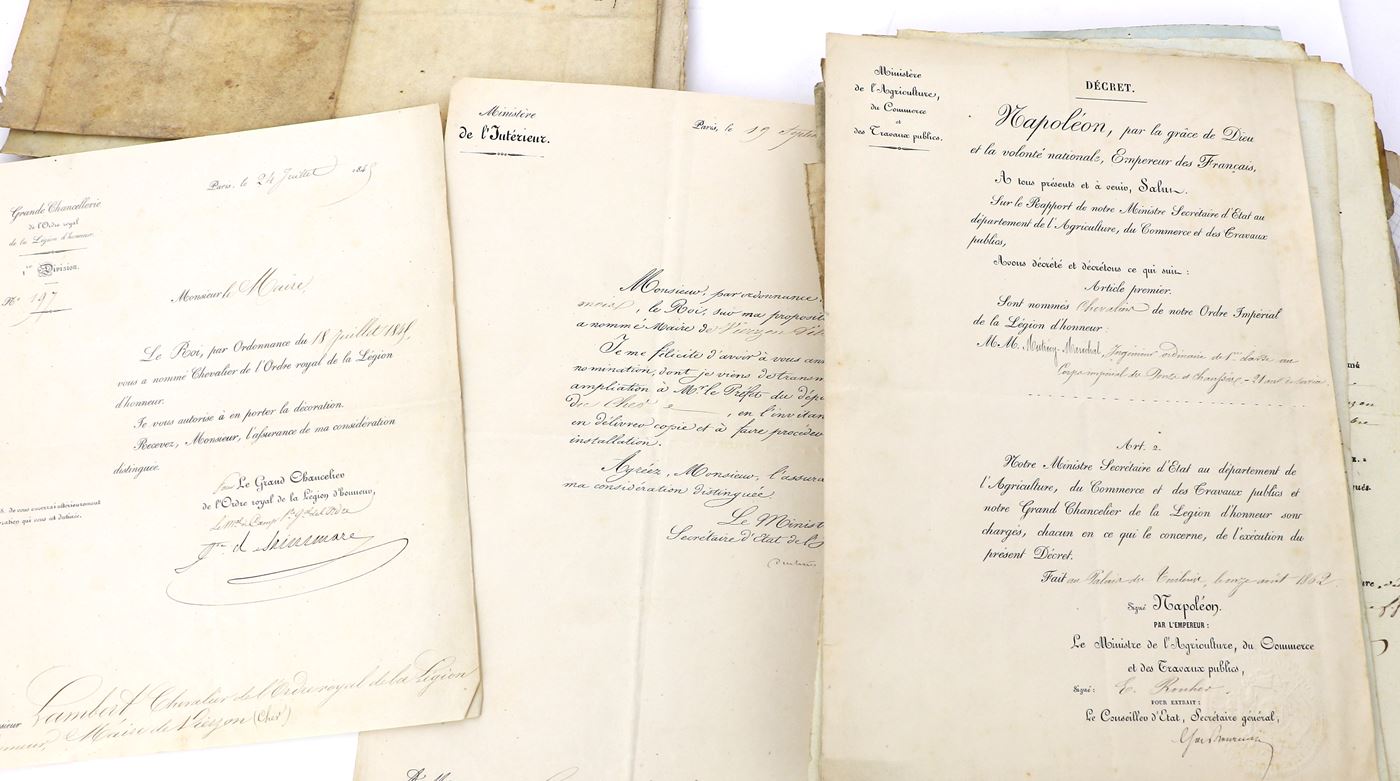 Paris, le 24 Juillet 184
Grande Chancellerie
de l'Ordre royal
de la Légion d'honneur.
1re Division.
No 197
Monsieur le Maire,
Le Roi, par Ordonnance du 18 Juillet
vous a nommé Chevalier de l'Ordre royal de la Légion
d'honneur.
Je vous autorise à en porter la décoration.
Recevez, Monsieur, l'assurance de ma considération
distinguée.
Le Grand Chancelier
de l'Ordre royal de la Légion d'honneur,
Lambert Chevalier de l'Ordre royal de la Légion
Maire de Vierzon (Cher)
Ministère
de l'Intérieur.
Paris, le 19
Monsieur, par ordonnance
mois, le Roi, sur ma
a nommé Maire de Vierzon
Je me félicite d'avoir à vous
nomination, dont je viens de
ampliation à Mr. le Préfet du
du Cher, en
en délivrer copie et à faire procéder
installation.
Agréez, Monsieur,
ma considération distinguée
Le
Secrétaire d'Etat de
Ministère
de l'Agriculture,
du Commerce
et
des Travaux publics.
DÉCRET.
Napoléon, par la grâce de Dieu
et la volonté nationale, Empereur des Français,
A tous présents et à venir, Salut.
Sur le Rapport de notre Ministre Secrétaire d'Etat au
département de l'Agriculture, du Commerce et des Travaux
publics,
Avons décrété et décrétons ce qui suit :
Article premier.
Sont nommés Chevalier de notre Ordre Impérial
de la Légion d'honneur :
MM. Ingénieur ordinaire de 1re classe au
Corps impérial des Ponts et chaussées - 21 ans de service.
Art. 2.
Notre Ministre Secrétaire d'Etat au département de
l'Agriculture, du Commerce et des Travaux publics et
notre Grand Chancelier de la Légion d'honneur sont
chargés, chacun en ce qui le concerne, de l'exécution du
présent Décret.
Fait au Palais des Tuileries, le onze août 1862.
Signé Napoléon.
PAR L'EMPEREUR :
Le Ministre de l'Agriculture, du Commerce
et des Travaux publics,
Signé : E. Rouher.
POUR EXTRAIT :
Le Conseiller d'Etat, Secrétaire général,